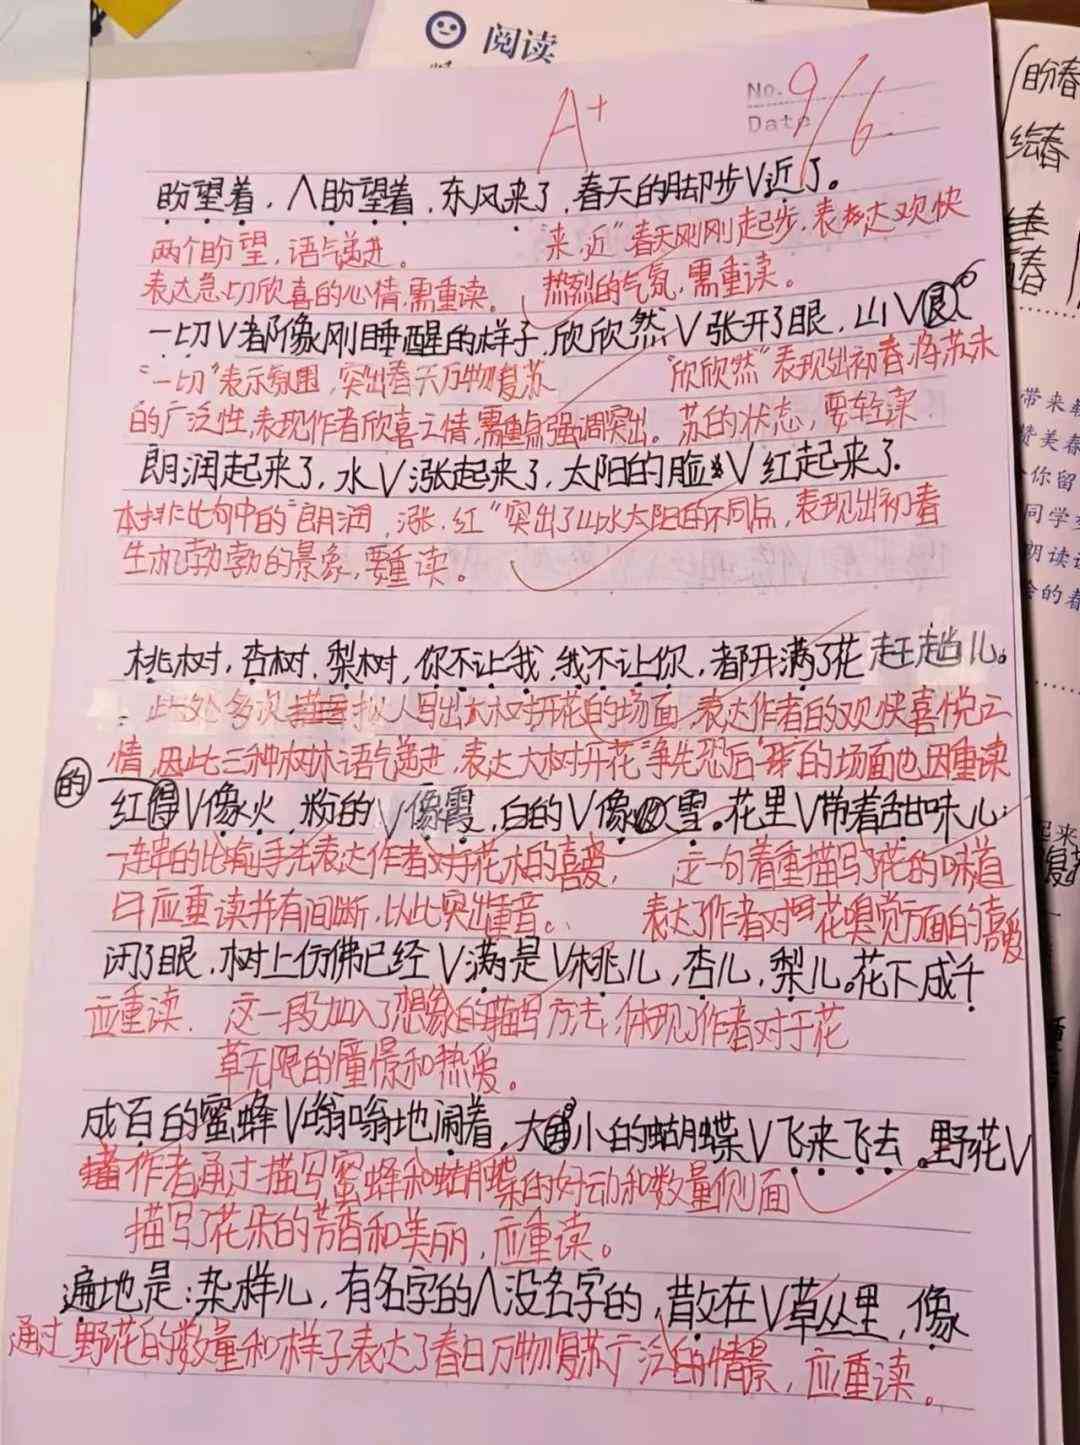 阅读
No. 9/6
Date
A+
盼望着，∧盼望着，东风来了，春天的脚步V近了。
两个盼望，语气递进。 "来，近"春天刚刚起步，表达欢快
表达急切欣喜的心情，需重读。 热烈的气氛，需重读。
一切V都像刚睡醒的样子，欣欣然V张开了眼，山V
"一切"表示氛围，突出春天万物复苏 "欣欣然"表现出初春将苏未
的广泛性，表现作者欣喜之情，需重点强调突出。 苏的状态，要轻读
朗润起来了，水V涨起来了，太阳的脸V红起来了。
本排比句中的"朗润，涨，红"突出了山水太阳的不同点，表现出初春
生机勃勃的景象，要重读。
桃树，杏树，梨树，你不让我，我不让你，都开满了花赶趟儿。
此处多次拟人写出大树开花的场面，表达作者的欢快喜悦之
情，因此三种树林语气递进，表达大树开花"争先恐后"的场面也因重读
的
红得V像火，粉的V像霞，白的V像雪。花里V带着甜味儿；
一连串的比喻手法表达作者对于花木的喜爱， 这一句着重描写了花的味道
因应重读并有间断，以此突出重音。 表达了作者对花嗅觉方面的喜爱
闭了眼，树上仿佛已经V满是V桃儿，杏儿，梨儿。花下成千
应重读. 这一段加入了想象的描写方法，体现了作者对于花
草无限的憧憬和热爱。
成百的蜜蜂V嗡嗡地闹着，大小的蝴蝶V飞来飞去。野花V
作者通过描写蜜蜂和蝴蝶的好动和数量侧面
描写了花朵的芳香和美丽，应重读。
遍地是：杂样儿，有名字的∧没名字的，散在V草丛里，像
通过野花的数量和样子表达了春日万物复苏广泛的情景，应重读。
盼春
绘春
春
带来
赞美春
你留
同学
朗读
绘的春
起来